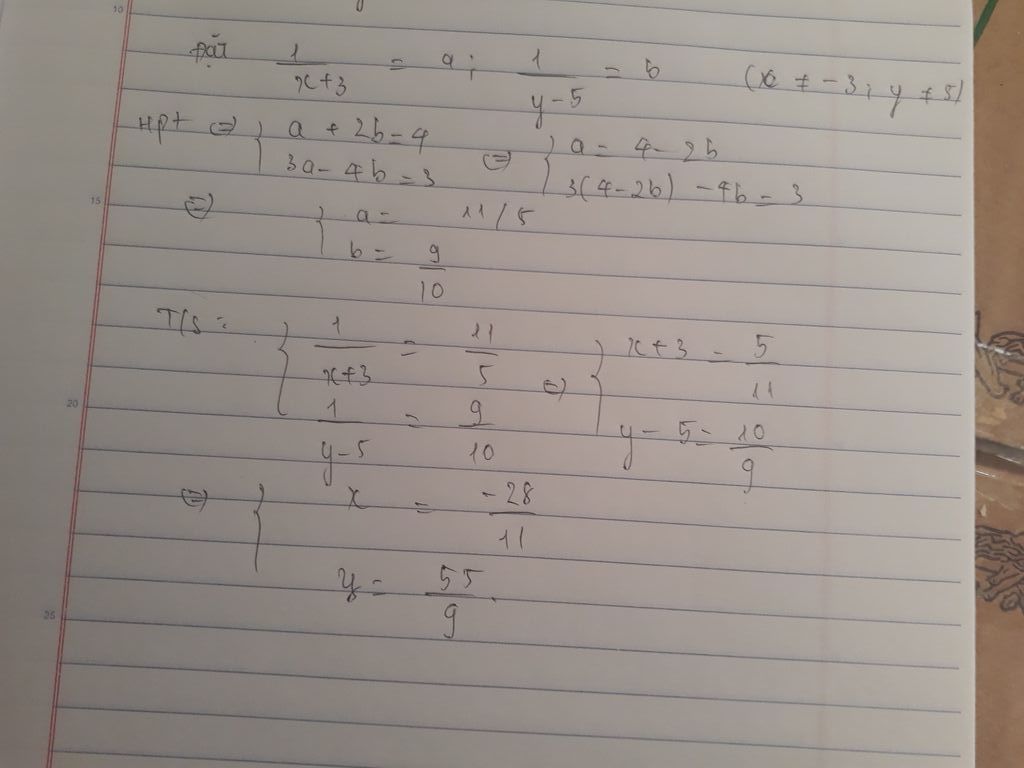 10
Đặt 1/(x+3) = a; 1/(y-5) = b (x ≠ -3; y ≠ 5)
Hpt ⇔ { a + 2b = 4 ⇔ { a = 4 - 2b
3a - 4b = 3 3(4-2b) - 4b = 3
15
⇔ { a = 11/5
b = 9/10
T/s: { 1/(x+3) = 11/5 ⇔ { x+3 = 5/11
20
1/(y-5) = 9/10 y - 5 = 10/9
⇔ { x = -28/11
y = 55/9.
25